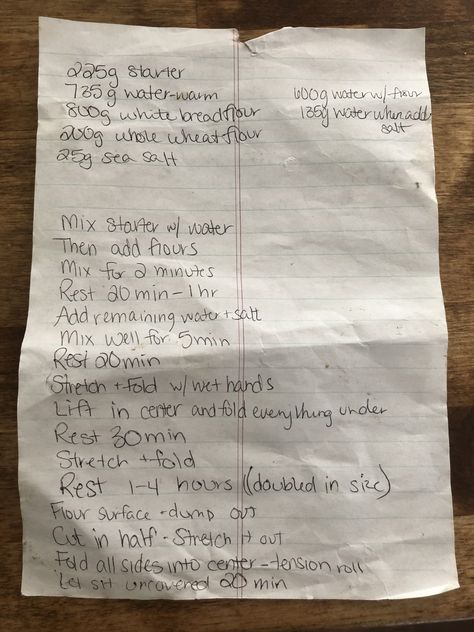 225g starter
735g water-warm
800g white bread flour
200g whole wheat flour
25g sea salt
600g water w/ flour
135g water when add
salt
Mix starter w/ water
Then add flours
Mix for 2 minutes
Rest 20 min - 1 hr
Add remaining water + salt
Mix well for 5 min
Rest 20 min
Stretch + fold w/ wet hands
Lift in center and fold everything under
Rest 30 min
Stretch + fold
Rest 1-4 hours (doubled in size)
Flour surface - dump out
Cut in half - Stretch it out
Fold all sides into center - tension roll
Let sit uncovered 20 min